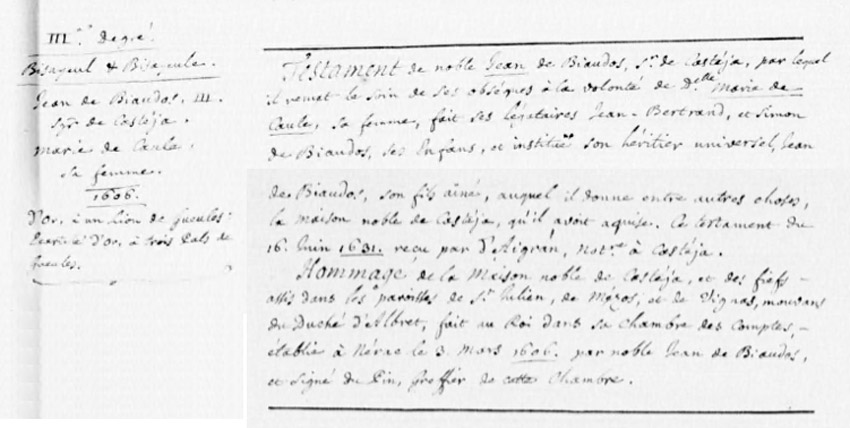 III.e degré.
Bisayeul & Bisayeule.
Jean de Biaudos, III.
sgr. de Castéja.
Marie de Caule,
sa femme.
1606.
D'Or, à un Lion de Gueules:
Ecartelé d'Or, à trois Pals de
Gueules.
Testament de noble Jean de Biaudos, Sr. de Castéja, par lequel
il remet le soin de ses obséques à la volonté de Delle Marie de
Caule, sa femme, fait ses légataires Jean-Bertrand, et Simon
de Biaudos, ses Enfans, et institue son héritier universel, Jean
de Biaudos, son fils aîné, auquel il donne entre autres choses,
la maison noble de Castéja, qu'il avoit aquise. Ce testament du
16. Juin 1631. reçu par d'Aigran, Notre. à Castéja.
Hommage de la Maison noble de Castéja, et des fiefs
assis dans les paroisses de St. Julien, de Mézos, et de Vignas, mouvans
du Duché d'Albret, fait au Roi dans sa Chambre des Comptes,
établie à Nérac le 3. Mars 1606. par noble Jean de Biaudos,
et signé du Pin, Greffier de cette Chambre.